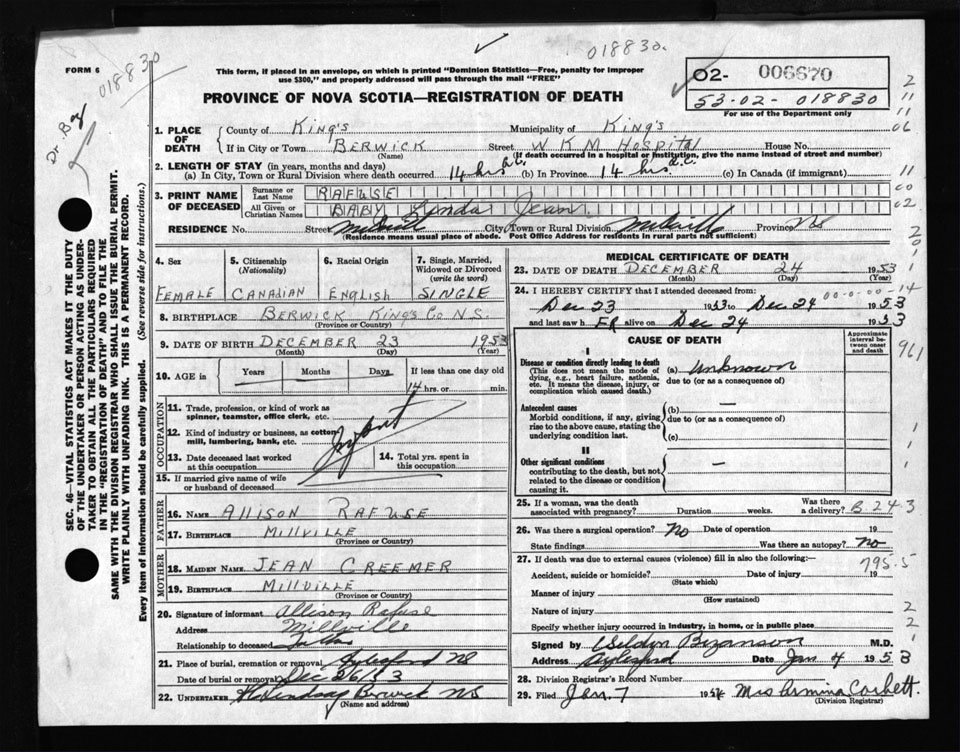 018830.
FORM 6
018830
Dr. Boy
This form, if placed in an envelope, on which is printed "Dominion Statistics—Free, penalty for improper
use $300," and properly addressed will pass through the mail "FREE"
PROVINCE OF NOVA SCOTIA—REGISTRATION OF DEATH
O2- 006670
53-02- 018830
For use of the Department only
1. PLACE OF DEATH
County of King's Municipality of King's
If in City or Town BERWICK Street WKM Hospital House No.
(Name) (If death occurred in a hospital or institution, give the name instead of street and number)
2. LENGTH OF STAY (in years, months and days)
(a) In City, Town or Rural Division where death occurred 14 hrs (b) In Province 14 hrs (c) In Canada (if immigrant)
3. PRINT NAME OF DECEASED
Surname or Last Name RAFUSE
All Given or Christian Names BABY Linda Jean
RESIDENCE No. Street Millville City, Town or Rural Division Millville Province NS
(Residence means usual place of abode. Post Office Address for residents in rural parts not sufficient)
4. Sex
FEMALE
5. Citizenship
(Nationality)
CANADIAN
6. Racial Origin
ENGLISH
7. Single, Married,
Widowed or Divorced
(write the word)
SINGLE
8. BIRTHPLACE BERWICK King's Co N.S.
(Province or Country)
9. DATE OF BIRTH DECEMBER 23 1953
(Month) (Day) (Year)
10. AGE in
Years Months Days If less than one day old
14 hrs. or min.
OCCUPATION
11. Trade, profession, or kind of work as
spinner, teamster, office clerk, etc.
12. Kind of industry or business, as cotton
mill, lumbering, bank, etc.
Infant
13. Date deceased last worked
at this occupation
14. Total yrs. spent in
this occupation
15. If married give name of wife
or husband of deceased
FATHER
16. NAME ALLISON RAFUSE
17. BIRTHPLACE MILLVILLE
(Province or Country)
MOTHER
18. MAIDEN NAME JEAN CREEMER
19. BIRTHPLACE MILLVILLE
(Province or Country)
20. Signature of informant Allison Rafuse
Address Millville
Relationship to deceased Father
21. Place of burial, cremation or removal Aylesford NS
Date of burial or removal Dec 26/53
22. UNDERTAKER Lindsay Berwick NS
(Name and address)
MEDICAL CERTIFICATE OF DEATH
23. DATE OF DEATH DECEMBER 24 1953
(Month) (Day) (Year)
24. I HEREBY CERTIFY that I attended deceased from: 00-0-00-14
Dec 23 1953 to Dec 24 1953
and last saw h ER alive on Dec 24 1953
CAUSE OF DEATH
Approximate interval between onset and death
I
Disease or condition directly leading to death
(This does not mean the mode of
dying, e.g., heart failure, asthenia,
etc. It means the disease, injury, or
complication which caused death.)
(a) Unknown
due to (or as a consequence of)
Antecedent causes
Morbid conditions, if any, giving
rise to the above cause, stating the
underlying condition last.
(b) —
due to (or as a consequence of)
(c)
II
Other significant conditions
contributing to the death, but not
related to the disease or condition
causing it.
—
25. If a woman, was the death
associated with pregnancy? Duration weeks. Was there a delivery?
B 24 3
26. Was there a surgical operation? No Date of operation 19
State findings Was there an autopsy? No
27. If death was due to external causes (violence) fill in also the following:—
795.5
Accident, suicide or homicide? Date of injury 19
(State which)
Manner of injury
(How sustained)
Nature of injury
Specify whether injury occurred in industry, in home, or in public place
Signed by Weldyn Bezanson M.D.
Address Aylesford Date Jan 4 1953
28. Division Registrar's Record Number
29. Filed Jan. 7 1954 Mrs Armina Corbett.
(Division Registrar)
SEC. 46—VITAL STATISTICS ACT MAKES IT THE DUTY
OF THE UNDERTAKER OR PERSON ACTING AS UNDER-
TAKER TO OBTAIN ALL THE PARTICULARS REQUIRED
IN THE "REGISTRATION OF DEATH" AND TO FILE THE
SAME WITH THE DIVISION REGISTRAR WHO SHALL ISSUE THE BURIAL PERMIT.
WRITE PLAINLY WITH UNFADING INK. THIS IS A PERMANENT RECORD.
Every item of information should be carefully supplied. (See reverse side for instructions.)
2
11
11
06
11
00
02
961
1
1
2
2
1